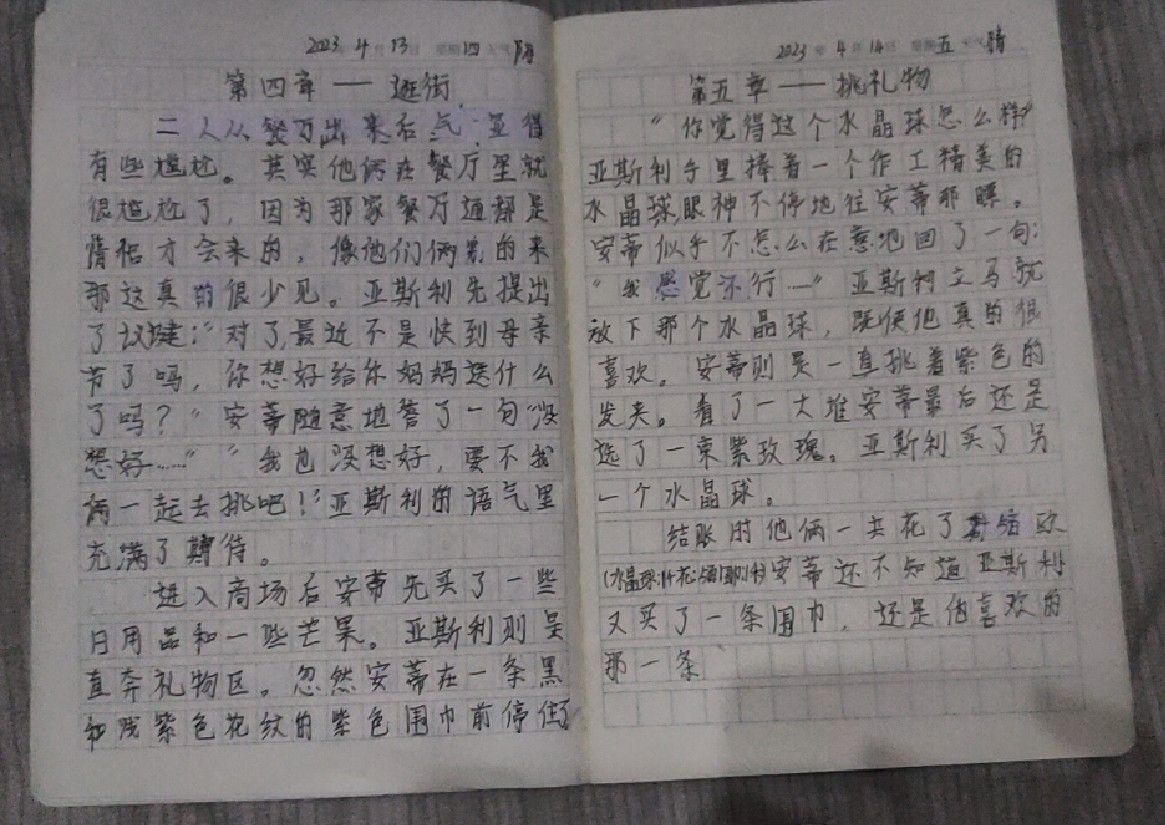 2023 年 4 月 13 日 星期 四 阴
第四章——逛街
二人从餐万出来后气,亚得
有些尴尬。其实他俩在餐厅里就
很尴尬了,因为那家餐万通都是
情侣才会来的,像他们俩系的来
那这真的很少见。亚斯利先提出
了议建:“对了,最近不是快到母亲
节了吗,你想好给你妈妈送什么
了吗?”安蒂随意地答了一句“没
想好……”“我也没想好,要不我
俩一起去挑吧!”亚斯利的语气里
充满了期待。
进入商场后安蒂先买了一些
日用品和一些芒果。亚斯利则是
直奔礼物区。忽然安蒂在一条黑
和浅紫色花纹的紫色围巾前停住了
2023 年 4 月 14 日 星期 五 晴
第五章——挑礼物
“你觉得这个水晶球怎么样?”
亚斯利手里捧着一个作工精美的
水晶球,眼神不停地往安蒂那瞟。
安蒂似乎不怎么在意地回了一句:
“我感觉还行……”亚斯利立马就
放下那个水晶球,既使他真的很
喜欢。安蒂则是一直挑着紫色的
发夹。看了一大堆安蒂最后还是
选了一束紫玫瑰。亚斯利买了另
一个水晶球。
结账时他俩一共花了
安蒂还不知道亚斯利
又买了一条围巾,还是他喜欢的
那一条